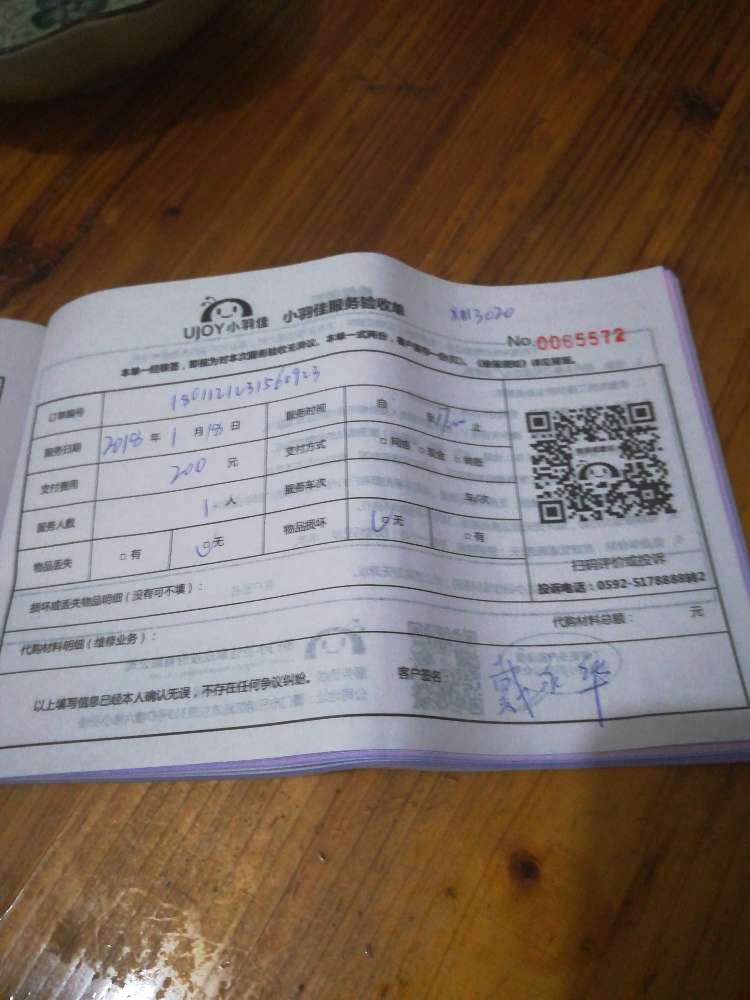 UJOY小羽佳 小羽佳服务验收单 3020
No.0065572
本单一经联签，即视为对本次服务验收无异议。本单一式两份，
订单编号 1801121231560923
服务日期 2018 年 1 月 18 日 服务时间 自 至 止
支付费用 200 元 支付方式 □ 网络 □ 现金 □ 转账
服务人数 1 人 服务车次 车/次
物品丢失 □ 有 □ 无 物品损坏 □ 无 □ 有
扫码评价或投诉
投诉电话：0592-5178888转2
损坏或丢失物品明细（没有可不填）：
代购材料明细（维修业务）： 代购材料总额： 元
以上填写信息已经本人确认无误，不存在任何争议纠纷。 客户签名： 戴永华